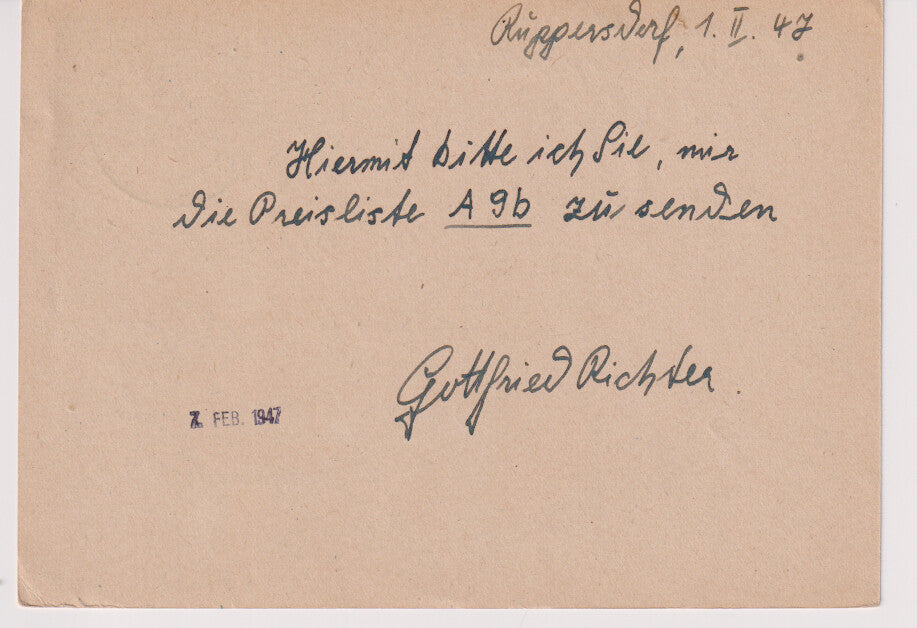 Ruppersdorf, 1. II. 47
Hiermit bitte ich Sie, mir
die Preisliste A 9b zu senden
Gottfried Richter.
7. FEB. 1947